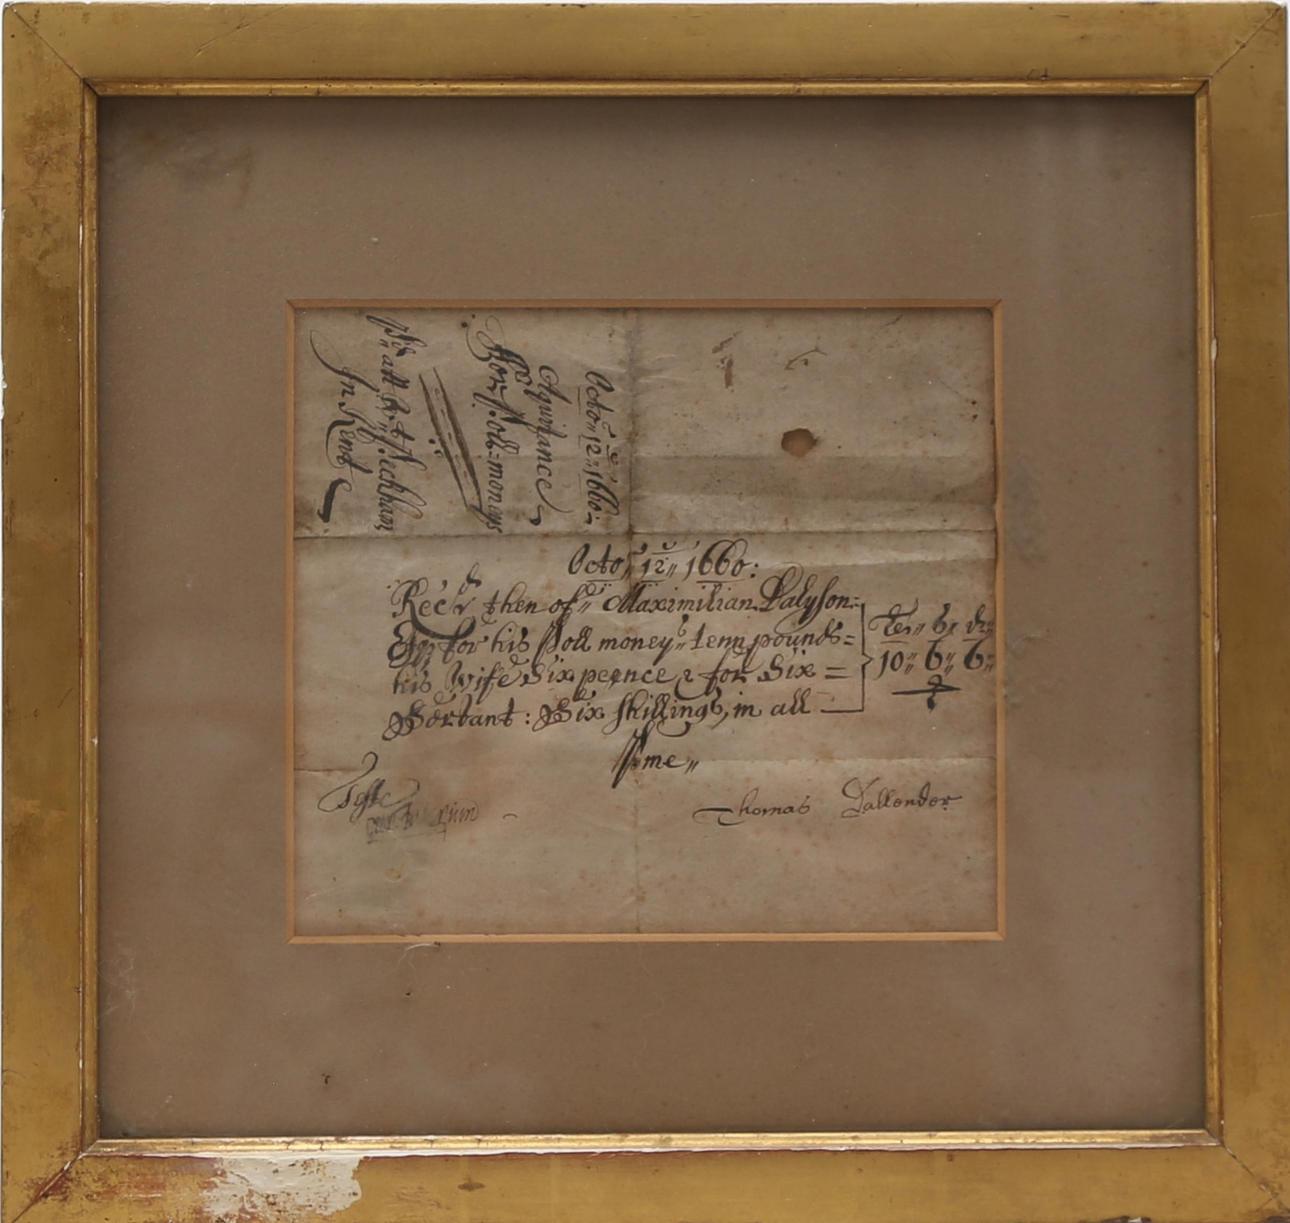 Octo: 12: 1660:
Aquitance
For Poll=moneys
pd att W:t Peckham
In Kent
Octo: 12: 1660:
Rec'd then of Maximilian Dalyson
Esq for his Poll money: tenn pounds=
his Wife Six pence & for Six =
Servant: Six shillings, in all
10: 6: 6:
P me
Teste
Thomas Dallender